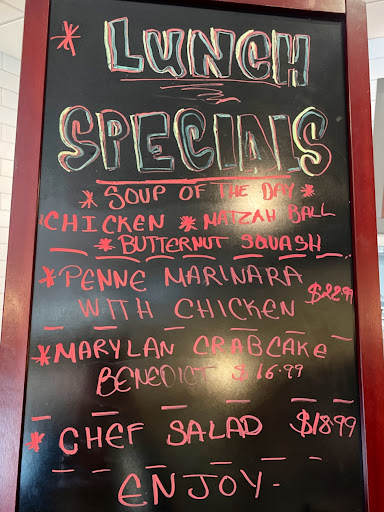 * LUNCH
SPECIALS
* SOUP OF THE DAY *
CHICKEN * MATZAH BALL
* BUTTERNUT SQUASH
* PENNE MARINARA
WITH CHICKEN $22.99
* MARYLAN CRABCAKE
BENEDICT $16.99
* CHEF SALAD $18.99
ENJOY-